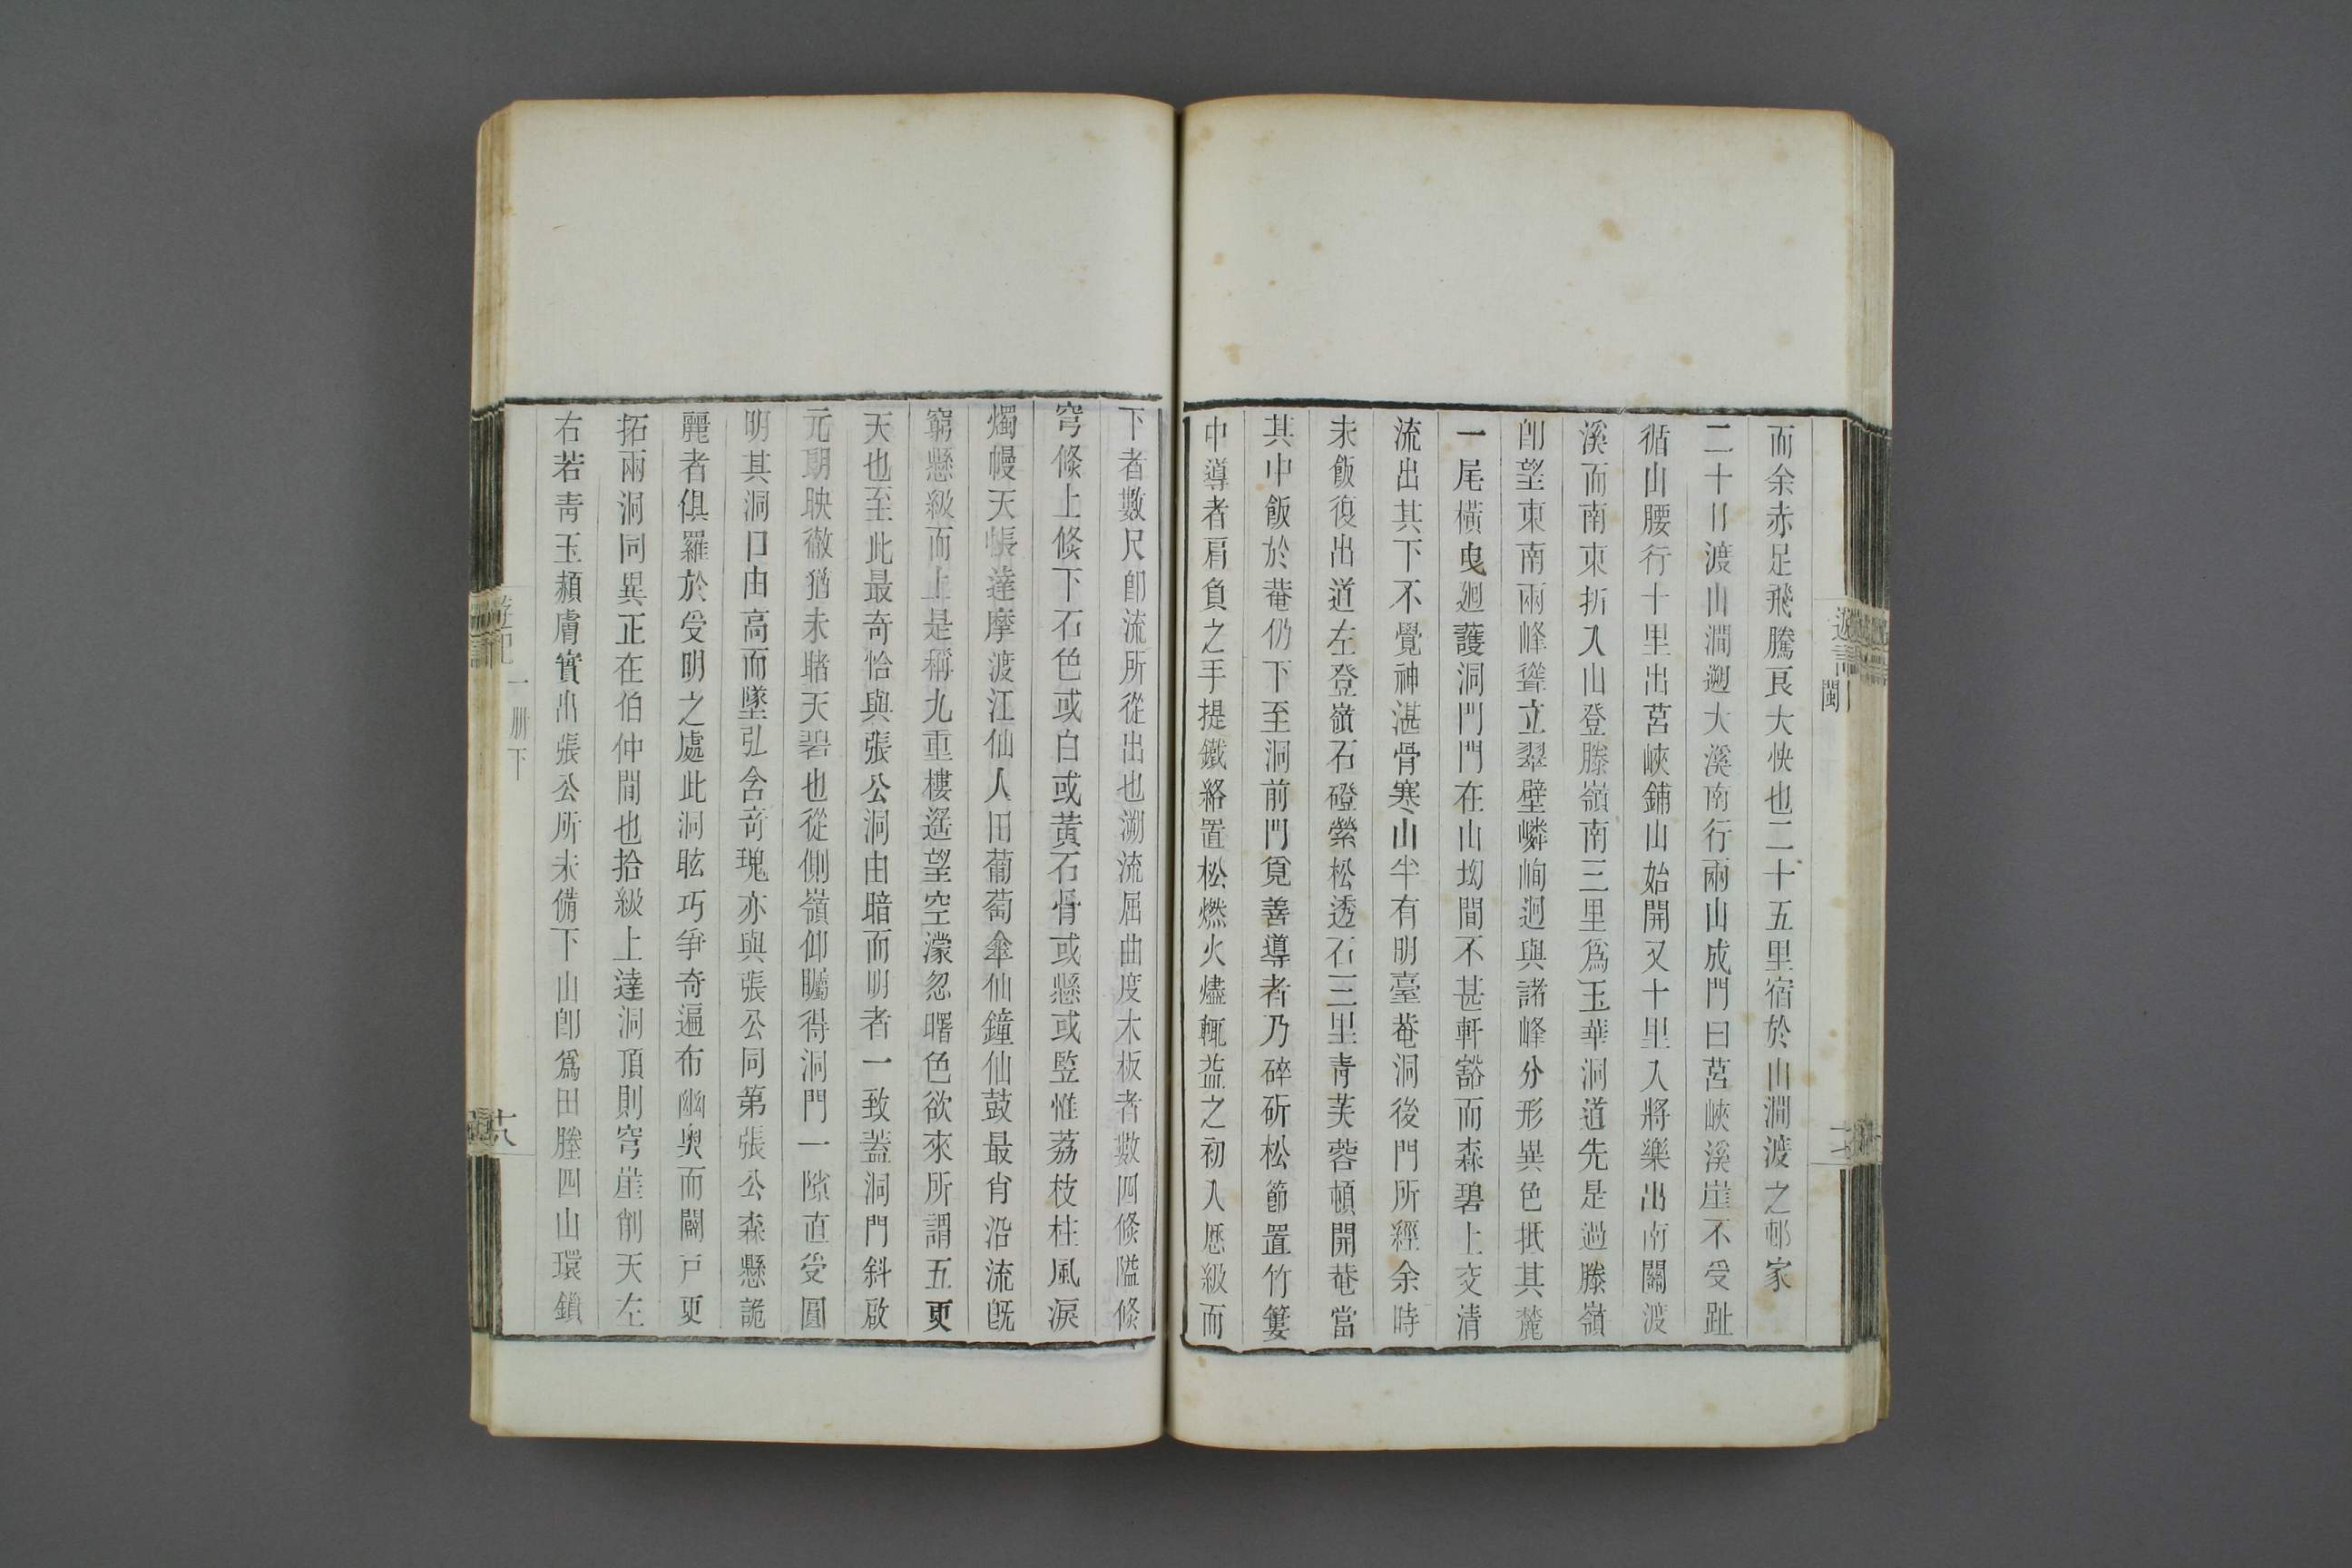 而余赤足飛騰良大快也二十五里宿於山澗渡之邨家
二十日渡山澗遡大溪南行兩山成門曰莒峽溪崖不受趾
循山腰行十里出莒峽鋪山始開又十里入將樂出南關渡
溪而南東折入山登滕嶺南三里爲玉華洞道先是過滕嶺
卽望東南兩峰聳立翠壁嶙峋迥與諸峰分形異色抵其麓
一尾橫曳廻護洞門門在山坳間不甚軒豁而森碧上交清
流出其下不覺神湛骨寒山半有明臺菴洞後門所經余時
未飯復出道左登嶺石磴縈松透石三里青芙蓉頓開菴當
其中飯於菴仍下至洞前門覓善導者乃碎斫松節置竹簍
中導者肩負之手提鐵絡置松燃火燼輒益之初入歷級而
下者數尺卽流所從出也溯流屈曲度木板者數四倏隘倏
穹倏上倏下石色或白或黃石骨或懸或竪惟荔枝柱風淚
燭幔天帳達摩渡江仙人田葡萄傘仙鐘仙鼓最肖沿流旣
窮懸級而上是稱九重樓遙望空濛忽曙色欲來所謂五更
天也至此最奇恰與張公洞由暗而明者一致蓋洞門斜啟
元期映徹猶未睹天碧也從側嶺仰矚得洞門一隙直受圓
明其洞口由高而墜弘含奇瑰亦與張公同第張公森懸詭
麗者俱羅於受明之處此洞眩巧爭奇遍布幽奧而闢戶更
拓兩洞同異正在伯仲間也拾級上達洞頂則穹崖削天左
右若青玉赬膚實出張公所未備下山卽爲田塍四山環鎖
遊記
閩
遊記
一册下
十八